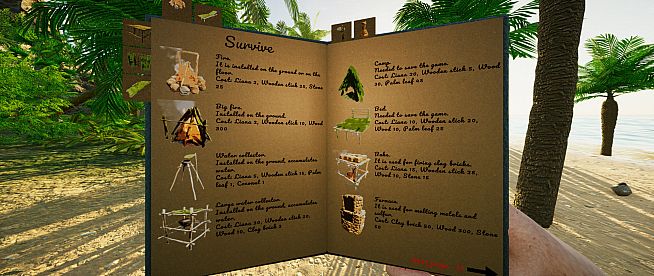 Survive
Fire.
It is installed on the ground or on the
floor.
Cost: Liana 2, Wooden stick 25, Stone
25
Big fire.
Installed on the ground.
Cost: Liana 2, Wooden stick 10, Wood
200
Water collector.
Installed on the ground, accumulates
water.
Cost: Liana 5, Wooden stick 15, Palm
leaf 1, Coconut 1
Large water collector.
Installed on the ground, accumulates
water.
Cost: Liana 20, Wooden stick 20,
Wood 10, Clay brick 2
Camp.
Needed to save the game.
Cost: Liana 20, Wooden stick 5, Wood
20, Palm leaf 45
Bed.
Needed to save the game.
Cost: Liana 10, Wooden stick 20,
Wood 10, Palm leaf 25
Bake.
It is used for firing clay bricks.
Cost: Liana 15, Wooden stick 35,
Wood 10, Stone 15
Furnace.
It is used for melting metals and
sulfur.
Cost: Clay brick 50, Wood 200, Stone
50